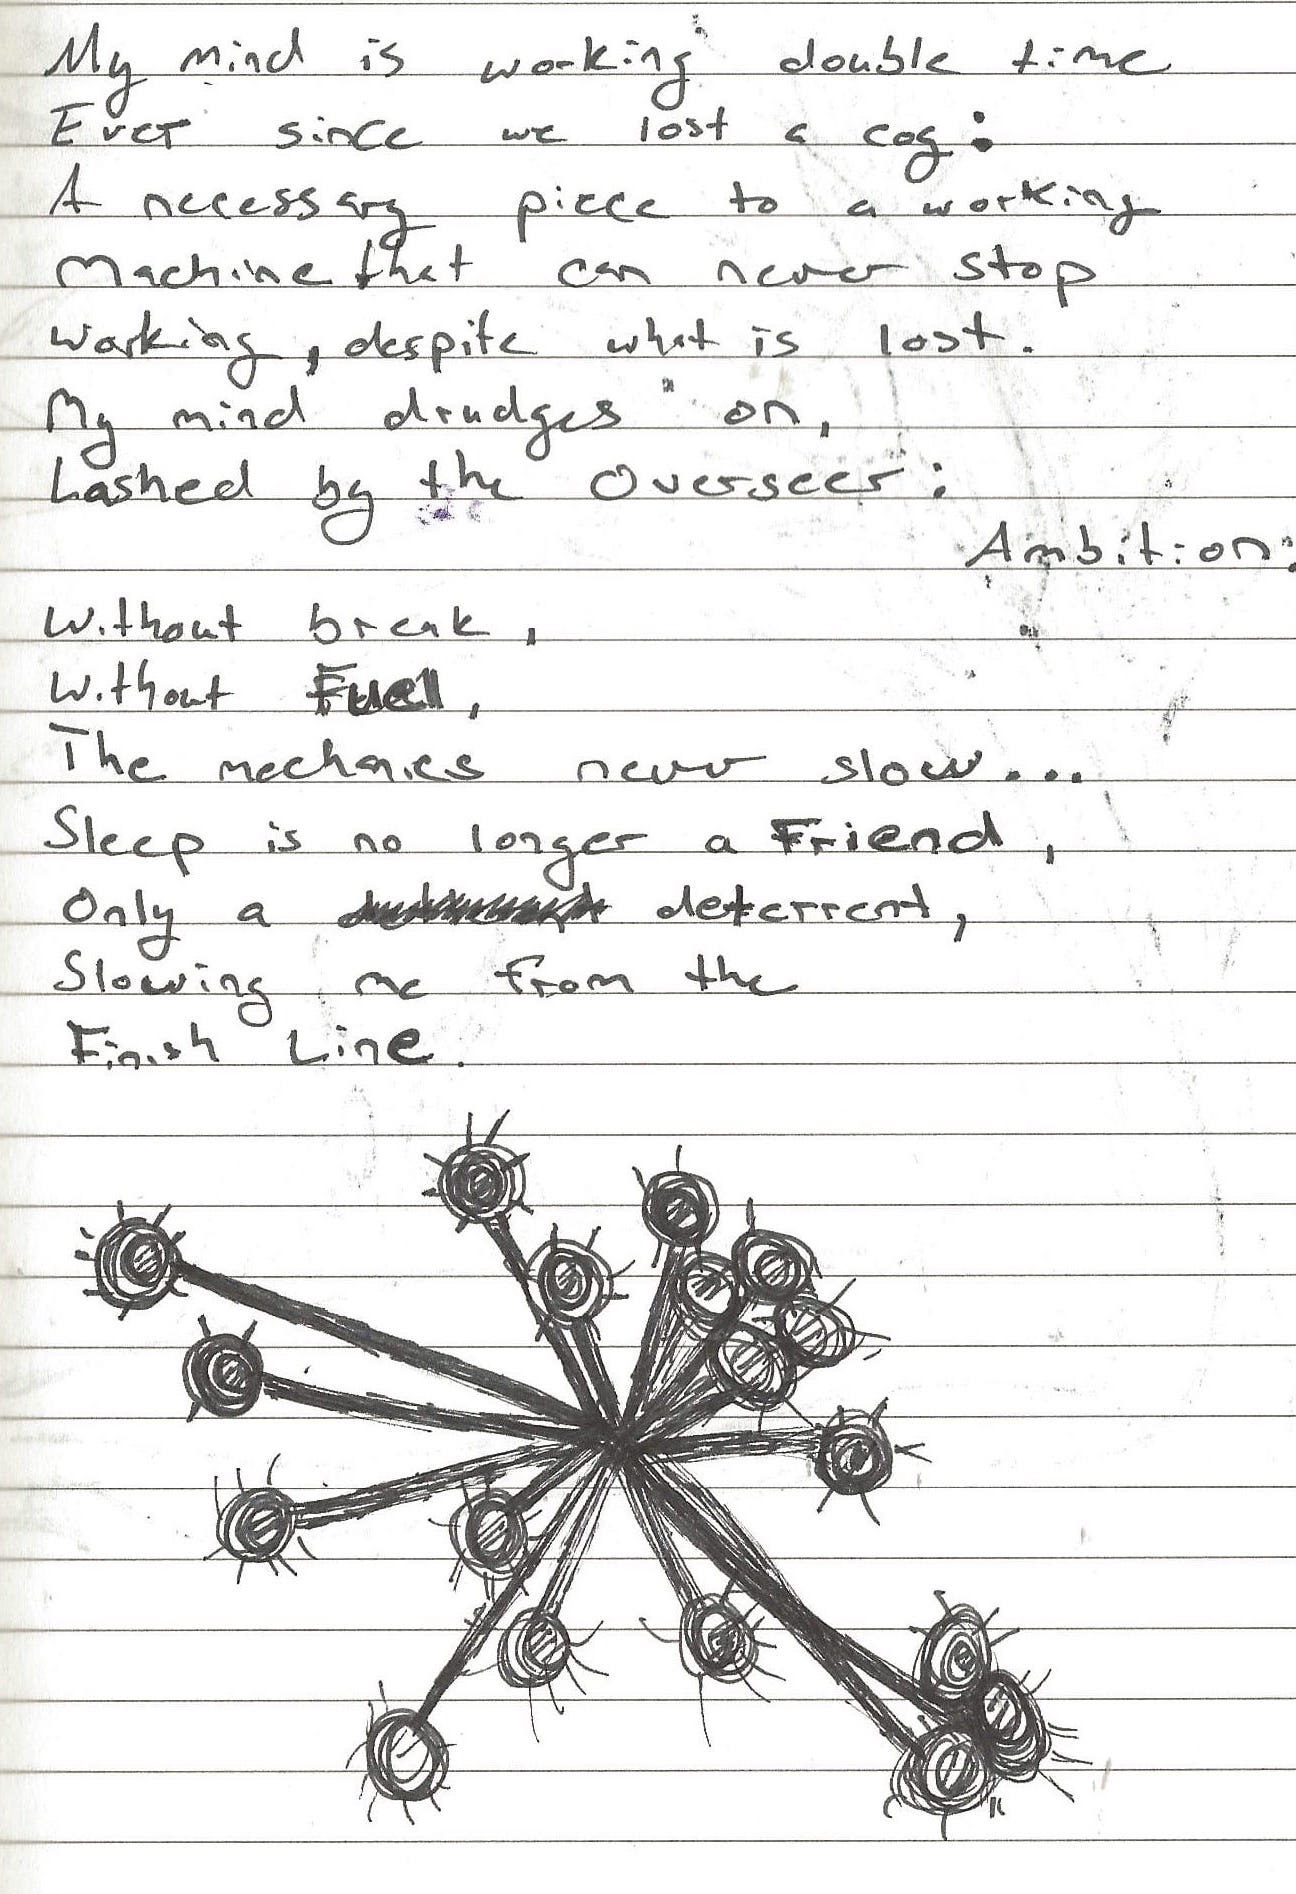 My mind is working double time
Ever since we lost a cog:
A necessary piece to a working
Machine that can never stop
Working, despite what is lost.
My mind drudges on,
Lashed by the Overseer:
Ambition:
Without break,
Without Fuel,
The mechanics never slow...
Sleep is no longer a Friend,
Only a deterrent,
Slowing me from the
Finish Line.